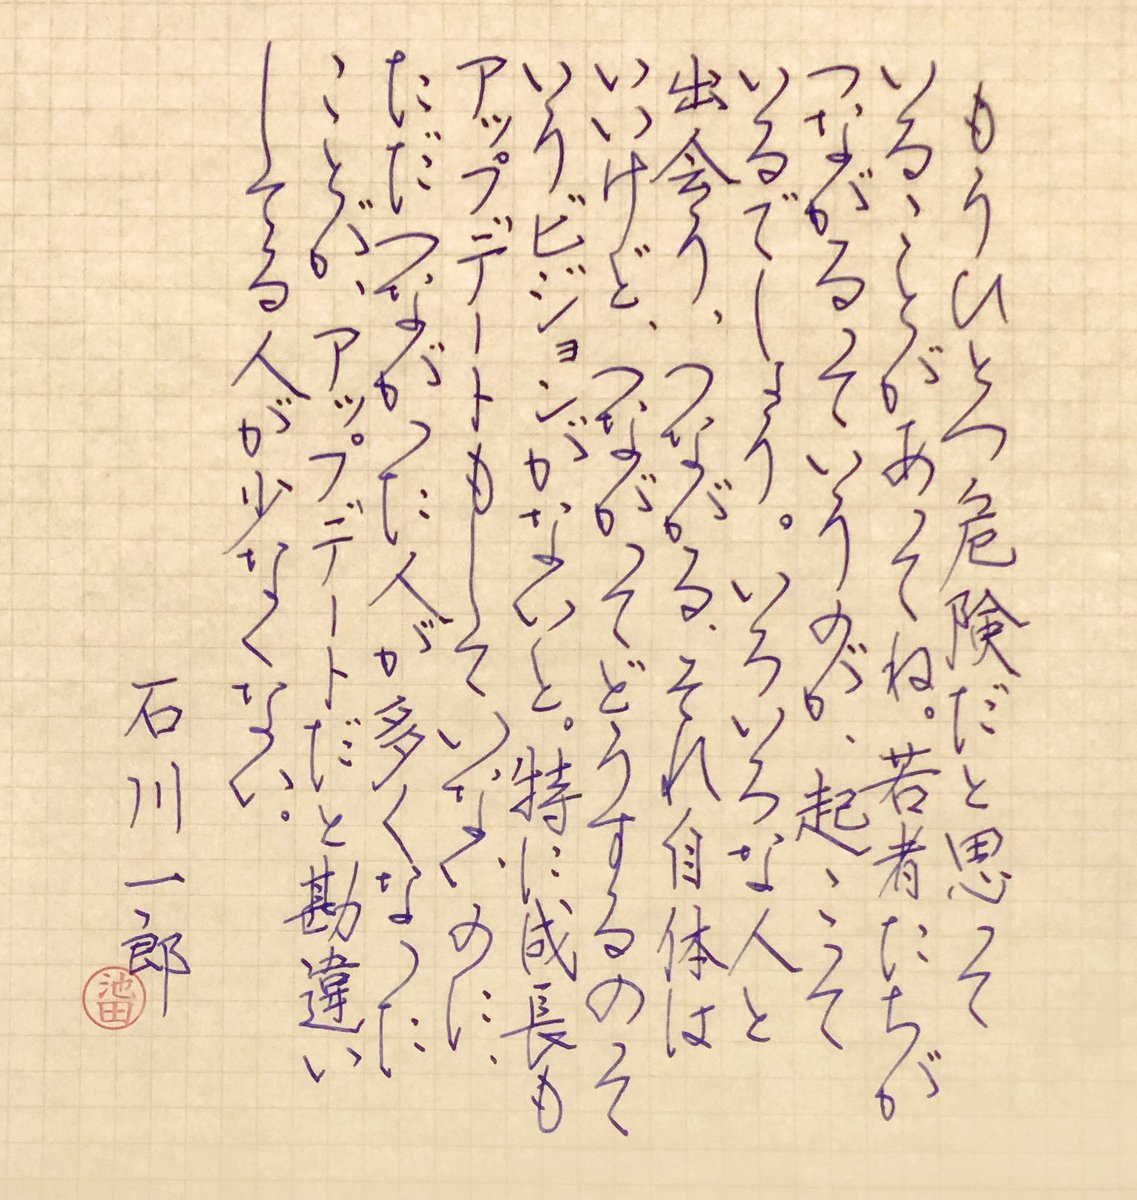 もうひとつ危険だと思って
いることがあってね。若者たちが
つながるっていうのが、起こって
いるでしょう。いろいろな人と
出会う、つながる、それ自体は
いいけど、つながってどうするのって
いうビジョンがないと。特に成長も
アップデートもしていないのに、
ただつながった人が多くなった
ことが、アップデートだと勘違い
してる人が少なくない。
石川一郎
池田